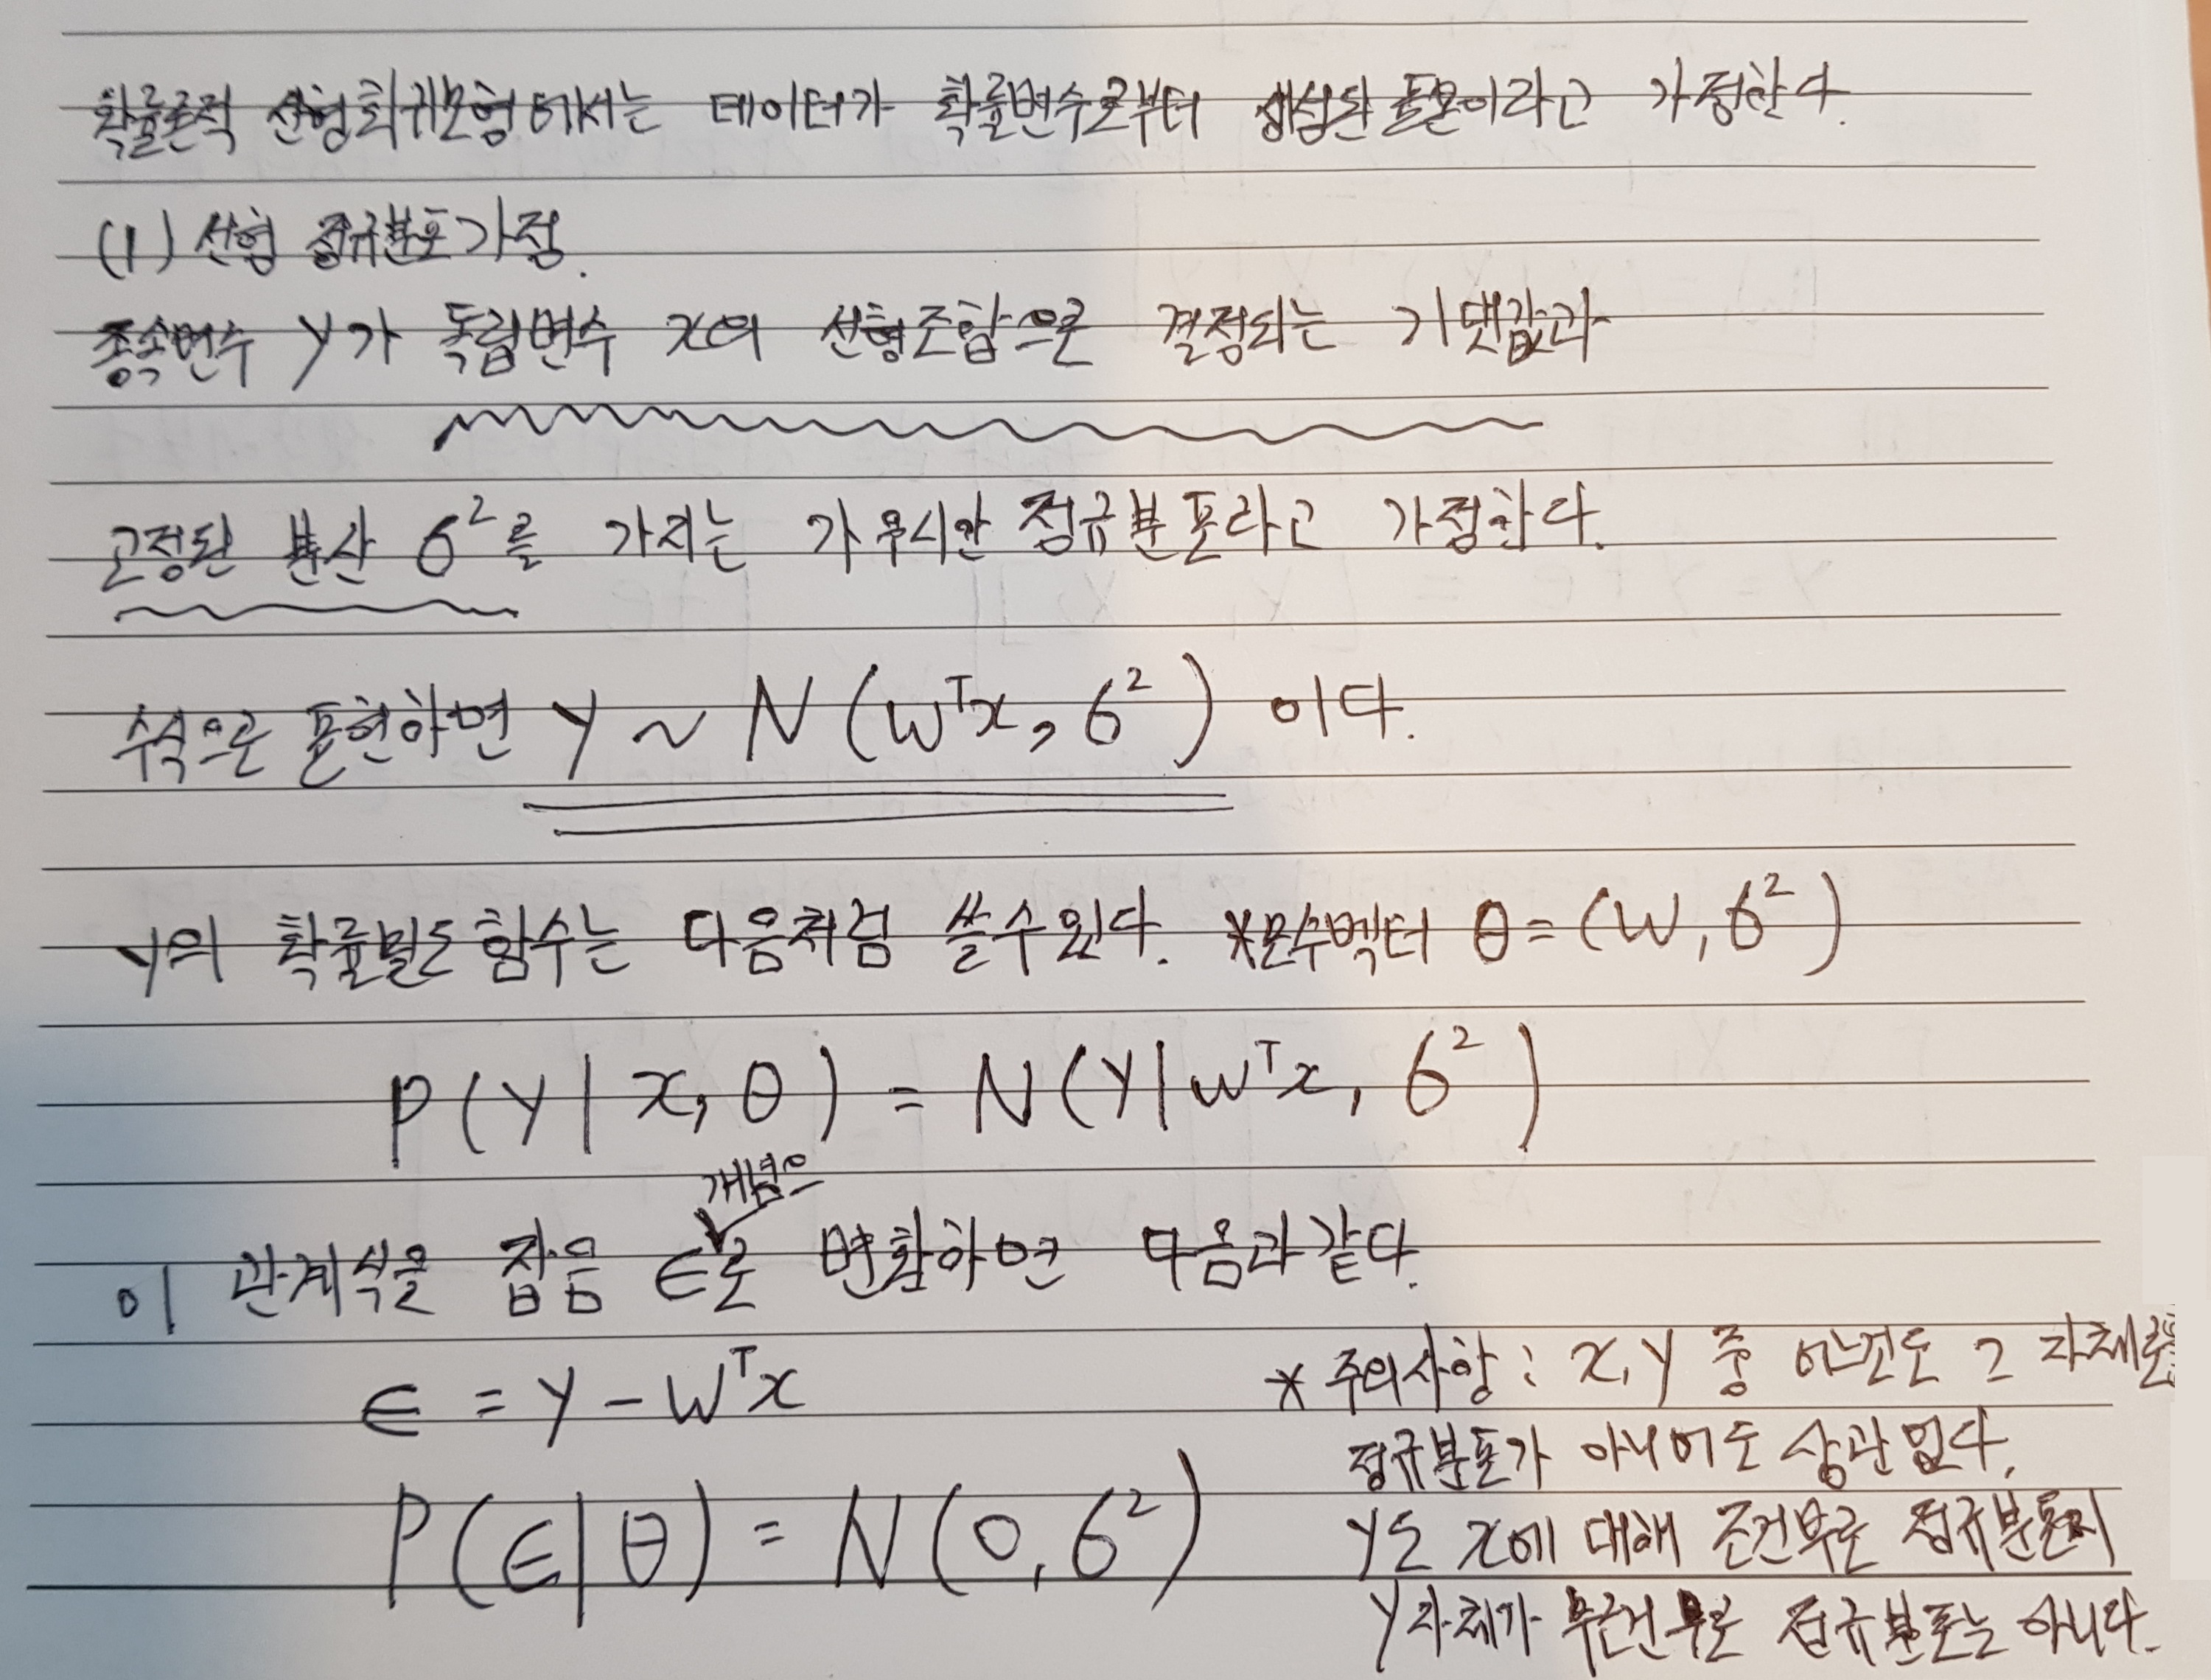 확률론적 선형회귀모형에서는 데이터가 확률변수로부터 생성된 표본이라고 가정한다.
(1) 선형 정규분포 가정.
종속변수 y가 독립변수 x의 선형조합으로 결정되는 기댓값과
고정된 분산 σ²를 가지는 가우시안 정규분포라고 가정한다.
수식으로 표현하면 y ~ N(wᵀx, σ²) 이다.
y의 확률밀도함수는 다음처럼 쓸수있다. *모수벡터 θ=(w, σ²)
P(y | x, θ) = N(y | wᵀx, σ²)
개념으
이 관계식을 잡음 ϵ로 변환하면 다음과 같다.
ϵ = y - wᵀx
P(ϵ | θ) = N(0, σ²)
* 주의사항 : x, y 중 어느것도 그 자체로
정규분포가 아니어도 상관없다.
y도 x에 대해 조건부로 정규분포지
y자체가 무조건부로 정규분포는 아니다.